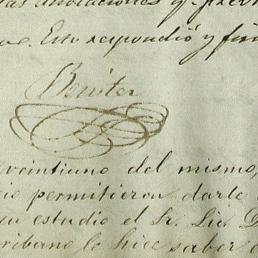 anotaciones y
Esto respondió y fir
Benitez
veintiuno del mismo,
permitieron darle
su estudio el Sr. Lic. D
cribano le hice saber